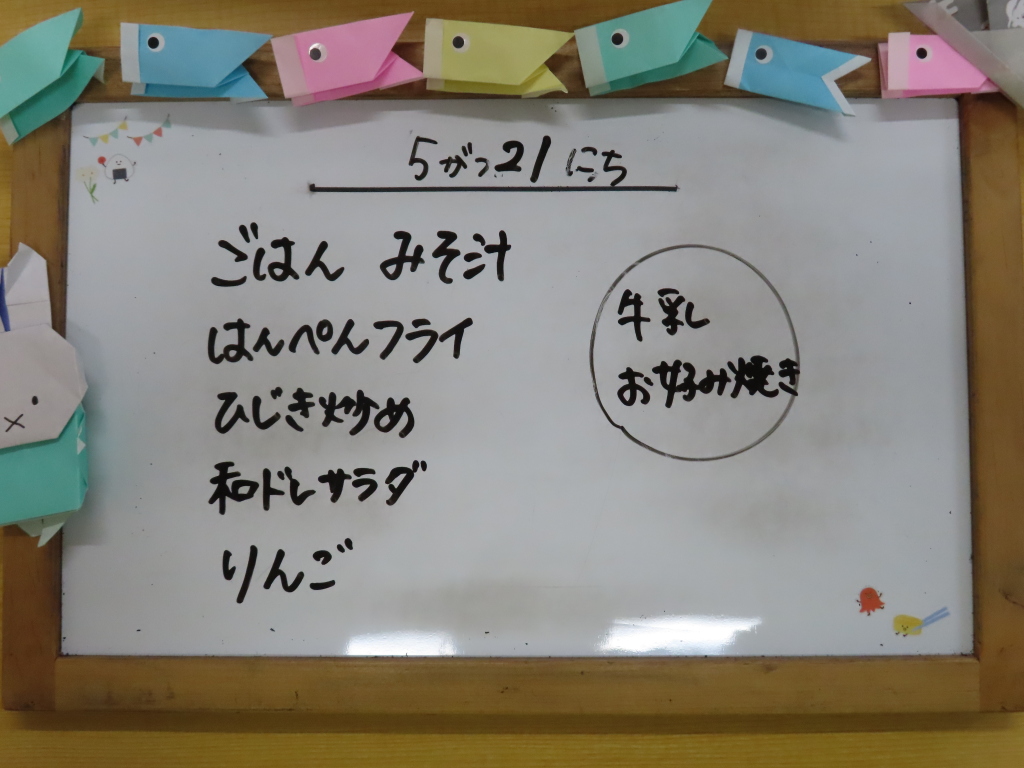 5がつ21にち
ごはん みそ汁
はんぺんフライ
ひじき炒め
和ドレサラダ
りんご
牛乳
お好み焼き